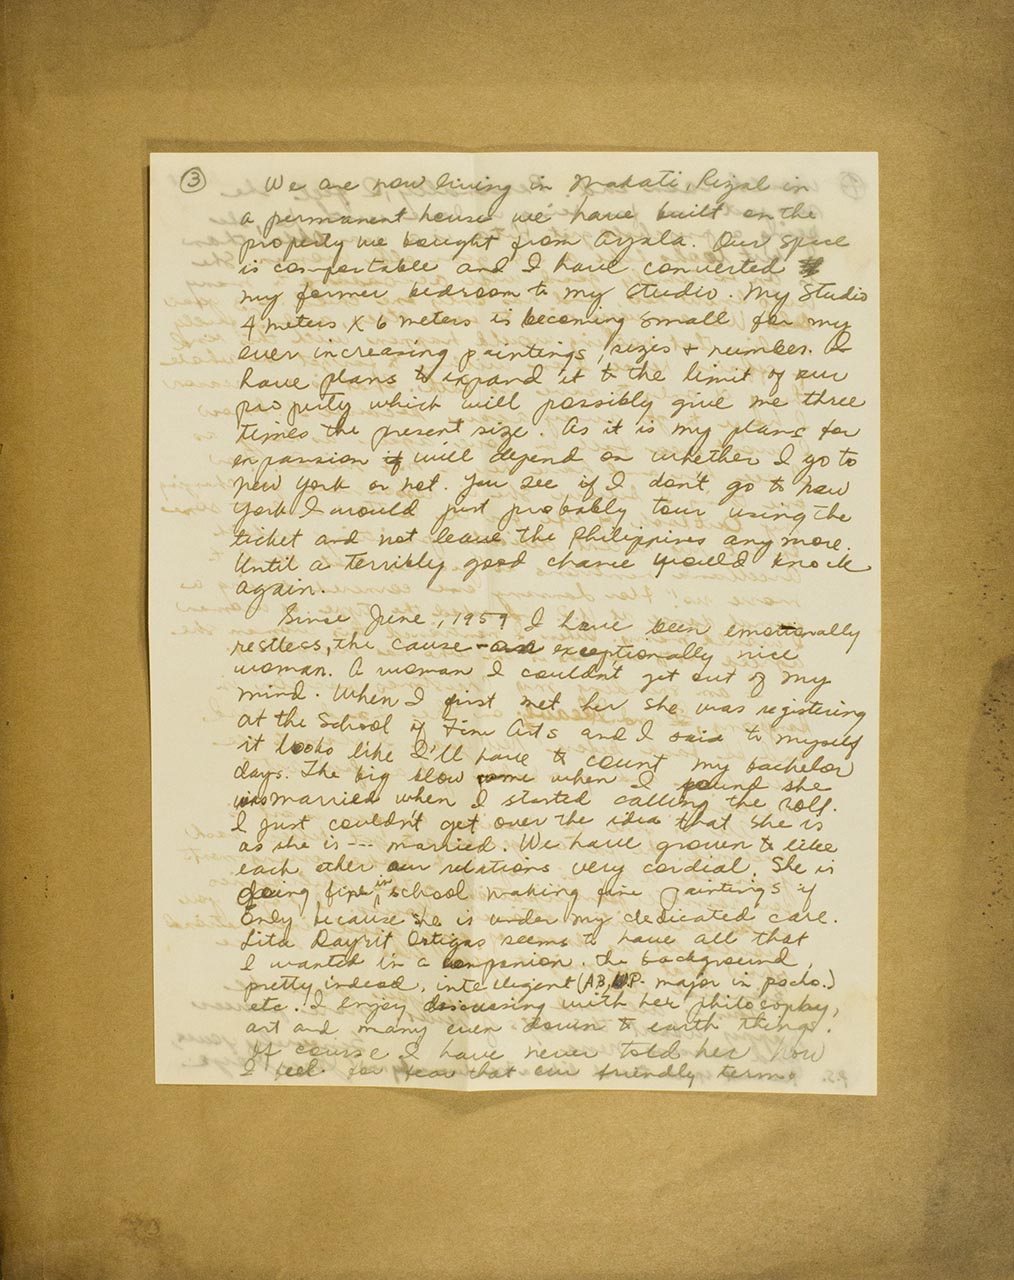 ③ We are now living in Makati, Rizal in
a permanent house we have built on the
property we bought from Ayala. Our space
is comfortable and I have converted
my former bedroom to my studio. My studio
4 meters X 6 meters is becoming small for my
ever increasing paintings, sizes & number. I
have plans to expand it to the limit of our
property which will possibly give me three
times the present size. As it is my plans for
expansion if will depend on whether I go to
New York or not. You see if I don't go to New
York I would just probably tour using the
ticket and not leave the Philippines anymore.
Until a terribly good chance would knock
again.
Since June, 1959 I have been emotionally
restless, the cause - an exceptionally nice
woman. A woman I couldn't get out of my
mind. When I first met her she was registering
at the School of Fine Arts and I said to myself
it looks like I'll have to count my bachelor
days. The big blow came when I found she
was married when I started calling the roll.
I just couldn't get over the idea that she is
as she is --- married. We have grown to like
each other our relations very cordial. She is
doing fine in school making fine paintings if
only because she is under my dedicated care.
Lita Dayrit Ortigas seems to have all that
I wanted in a companion. The background,
pretty indeed, intelligent (A.B., U.P. major in pscho.)
etc. I enjoy discussing with her philosophy,
art and many even down to earth things.
Of course I have never told her how
I feel for fear that our friendly terms
P.S.